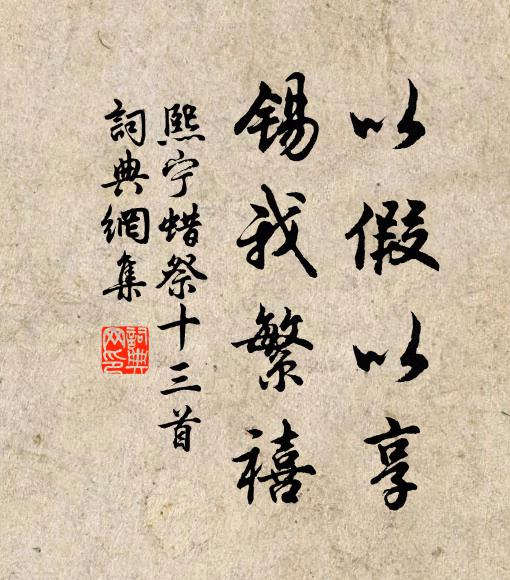 以假以享
锡我繁禧
熙宁蜡祭十三首
詞典網集
詞典網印